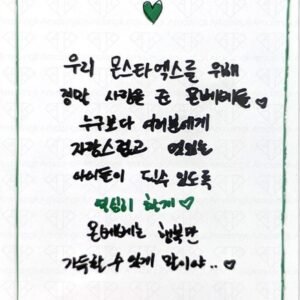 우리 몬스타엑스를 위해
정말 사랑을 준 몬베베들♡
누구보다 여러분에게
자랑스럽고 멋있는
아이돌이 될수 있도록
열심히 할게♡
몬베베는 행복만
가득할 수 있게 말이야..♡